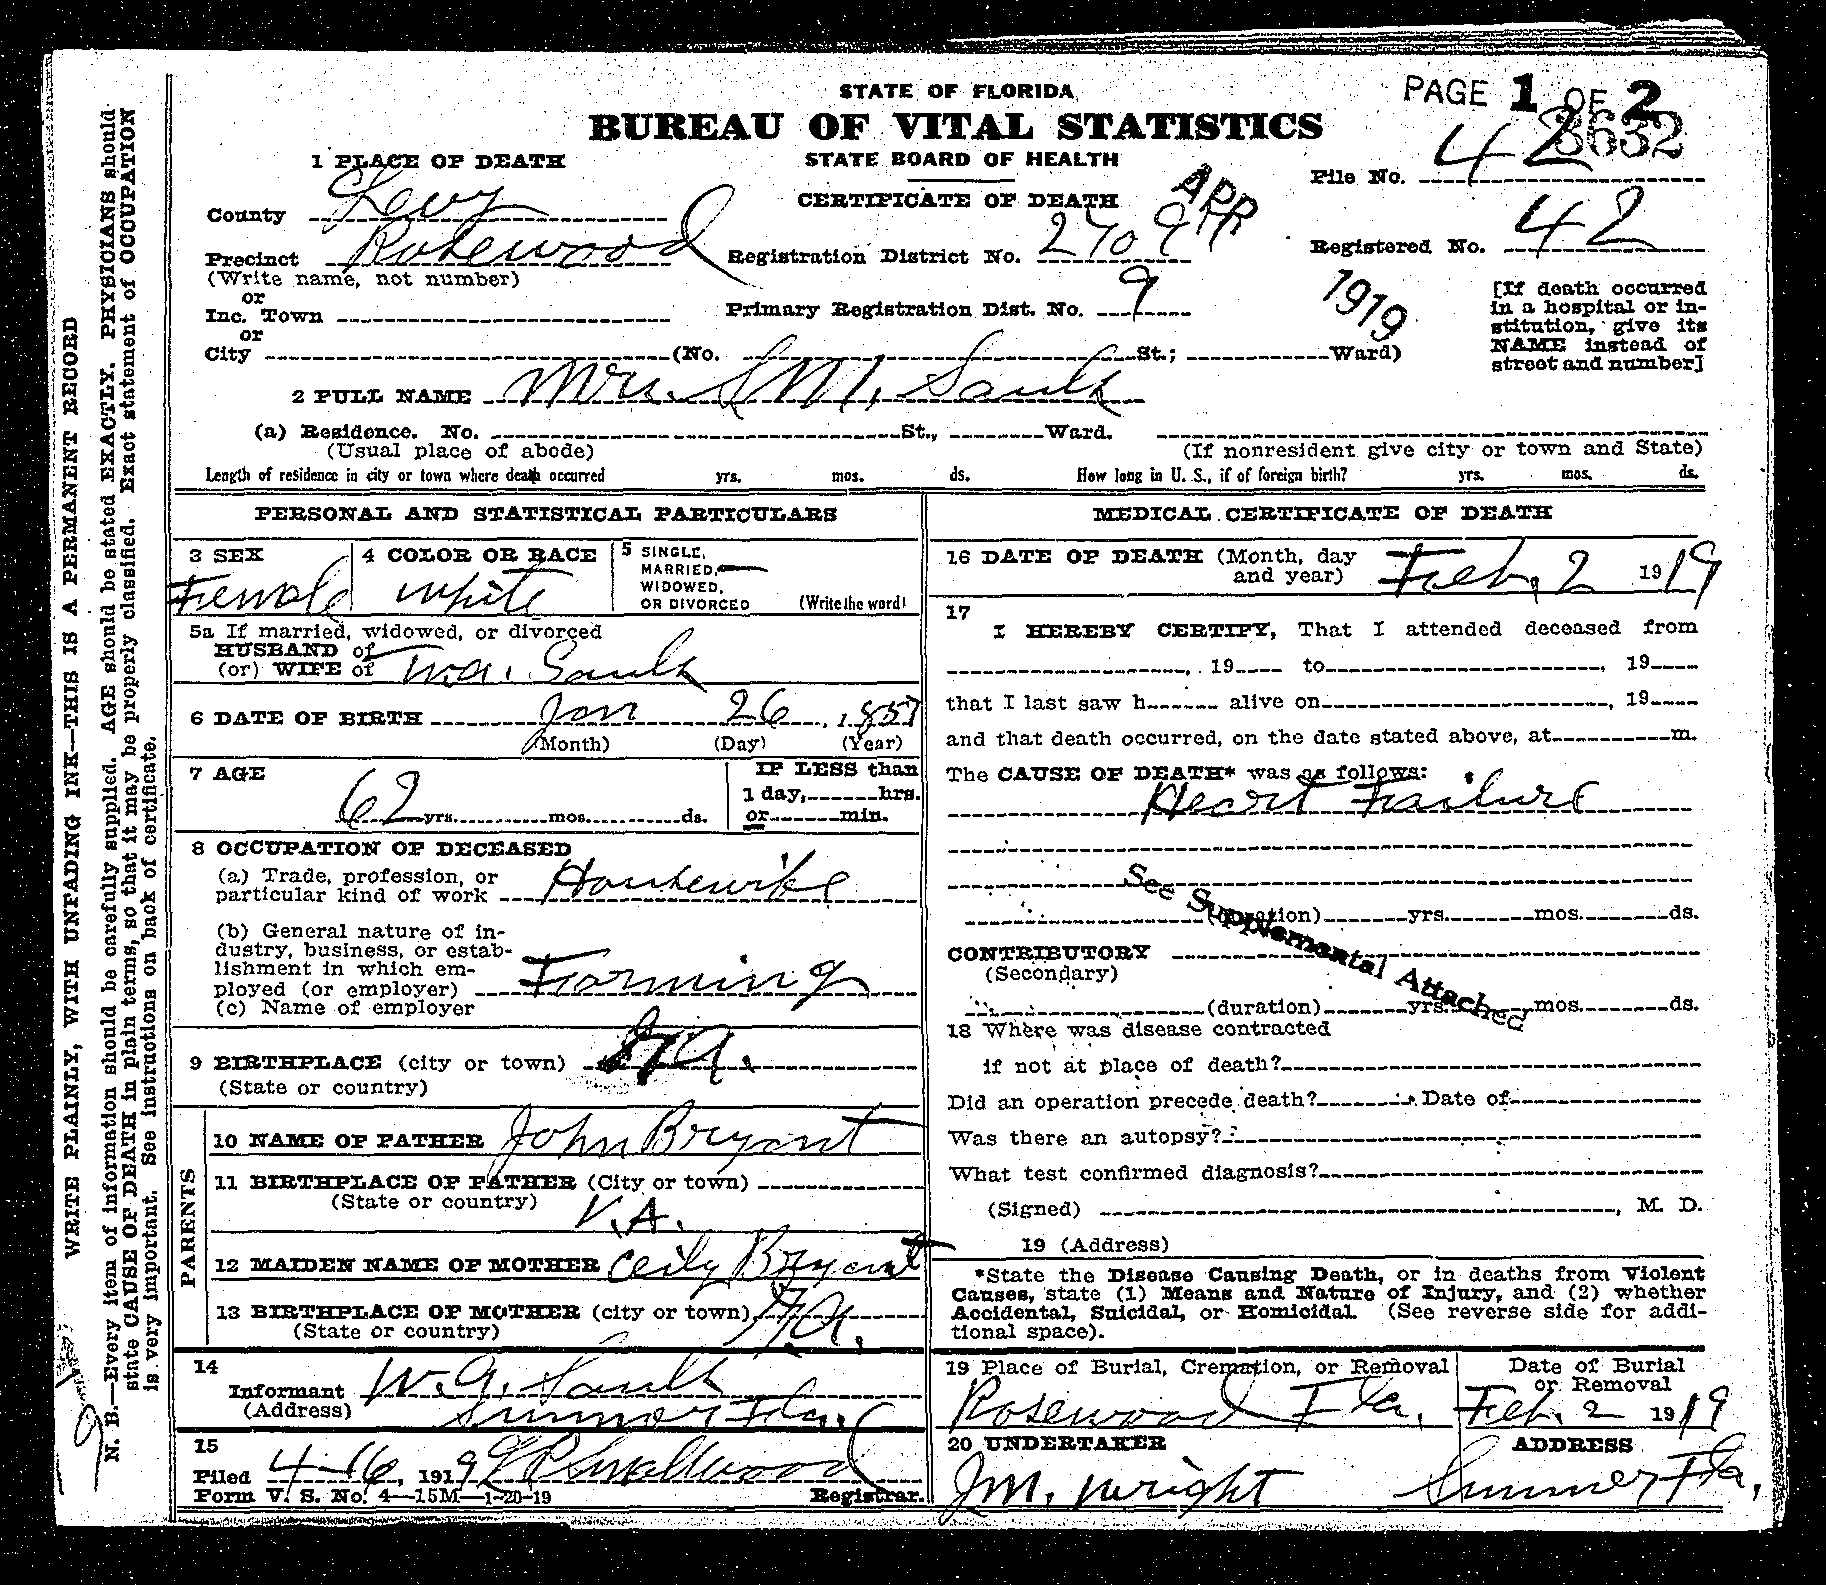 PAGE 1 OF 2
STATE OF FLORIDA
BUREAU OF VITAL STATISTICS
STATE BOARD OF HEALTH
3632
1 PLACE OF DEATH
File No. 42
CERTIFICATE OF DEATH
APR
1919
County Levy
Precinct Rosewood
(Write name, not number)
or
Inc. Town
or
City (No. St.; Ward)
Registration District No. 2709
Primary Registration Dist. No. 9
Registered No. 42
[If death occurred
in a hospital or in-
stitution, give its
NAME instead of
street and number]
2 FULL NAME Mrs. S M. Sauls
(a) Residence. No. St., Ward.
(Usual place of abode) (If nonresident give city or town and State)
Length of residence in city or town where death occurred yrs. mos. ds. How long in U. S., if of foreign birth? yrs. mos. ds.
PERSONAL AND STATISTICAL PARTICULARS
3 SEX
Female
4 COLOR OR RACE
white
5 SINGLE,
MARRIED,
WIDOWED,
OR DIVORCED (Write the word)
5a If married, widowed, or divorced
HUSBAND of
(or) WIFE of W.A. Sauls
6 DATE OF BIRTH Jan 26, 1857
(Month) (Day) (Year)
7 AGE
62 yrs. mos. ds.
IF LESS than
1 day, hrs.
or min.
8 OCCUPATION OF DECEASED
(a) Trade, profession, or
particular kind of work Housewife
(b) General nature of in-
dustry, business, or estab-
lishment in which em-
ployed (or employer) Farming
(c) Name of employer
9 BIRTHPLACE (city or town) Ga.
(State or country)
PARENTS
10 NAME OF FATHER John Bryant
11 BIRTHPLACE OF FATHER (City or town)
(State or country) V.A.
12 MAIDEN NAME OF MOTHER Ceily Bryant
13 BIRTHPLACE OF MOTHER (city or town)
(State or country)
14
Informant W.A. Sauls
(Address) Sumner Fla.
15
Filed 4-16, 1919 Smallwood
Registrar.
Form V. S. No. 4—15M—1-20-19
MEDICAL CERTIFICATE OF DEATH
16 DATE OF DEATH (Month, day
and year) Feb. 2 1919
17
I HEREBY CERTIFY, That I attended deceased from
, 19 to , 19
that I last saw h alive on , 19
and that death occurred, on the date stated above, at m.
The CAUSE OF DEATH* was as follows:
Heart Failure
See Supplemental Attached
(duration) yrs. mos. ds.
CONTRIBUTORY
(Secondary)
(duration) yrs. mos. ds.
18 Where was disease contracted
if not at place of death?
Did an operation precede death? Date of
Was there an autopsy?
What test confirmed diagnosis?
(Signed) , M. D.
19 (Address)
*State the Disease Causing Death, or in deaths from Violent
Causes, state (1) Means and Nature of Injury, and (2) whether
Accidental, Suicidal, or Homicidal. (See reverse side for addi-
tional space).
19 Place of Burial, Cremation, or Removal
Rosewood Fla.
Date of Burial
or Removal
Feb. 2 1919
20 UNDERTAKER
J.M. Wright
ADDRESS
Sumner Fla.
WRITE PLAINLY, WITH UNFADING INK—THIS IS A PERMANENT RECORD
N. B.—Every item of information should be carefully supplied. AGE should be stated EXACTLY. PHYSICIANS should
state CAUSE OF DEATH in plain terms, so that it may be properly classified. Exact statement of OCCUPATION
is very important. See instructions on back of certificate.